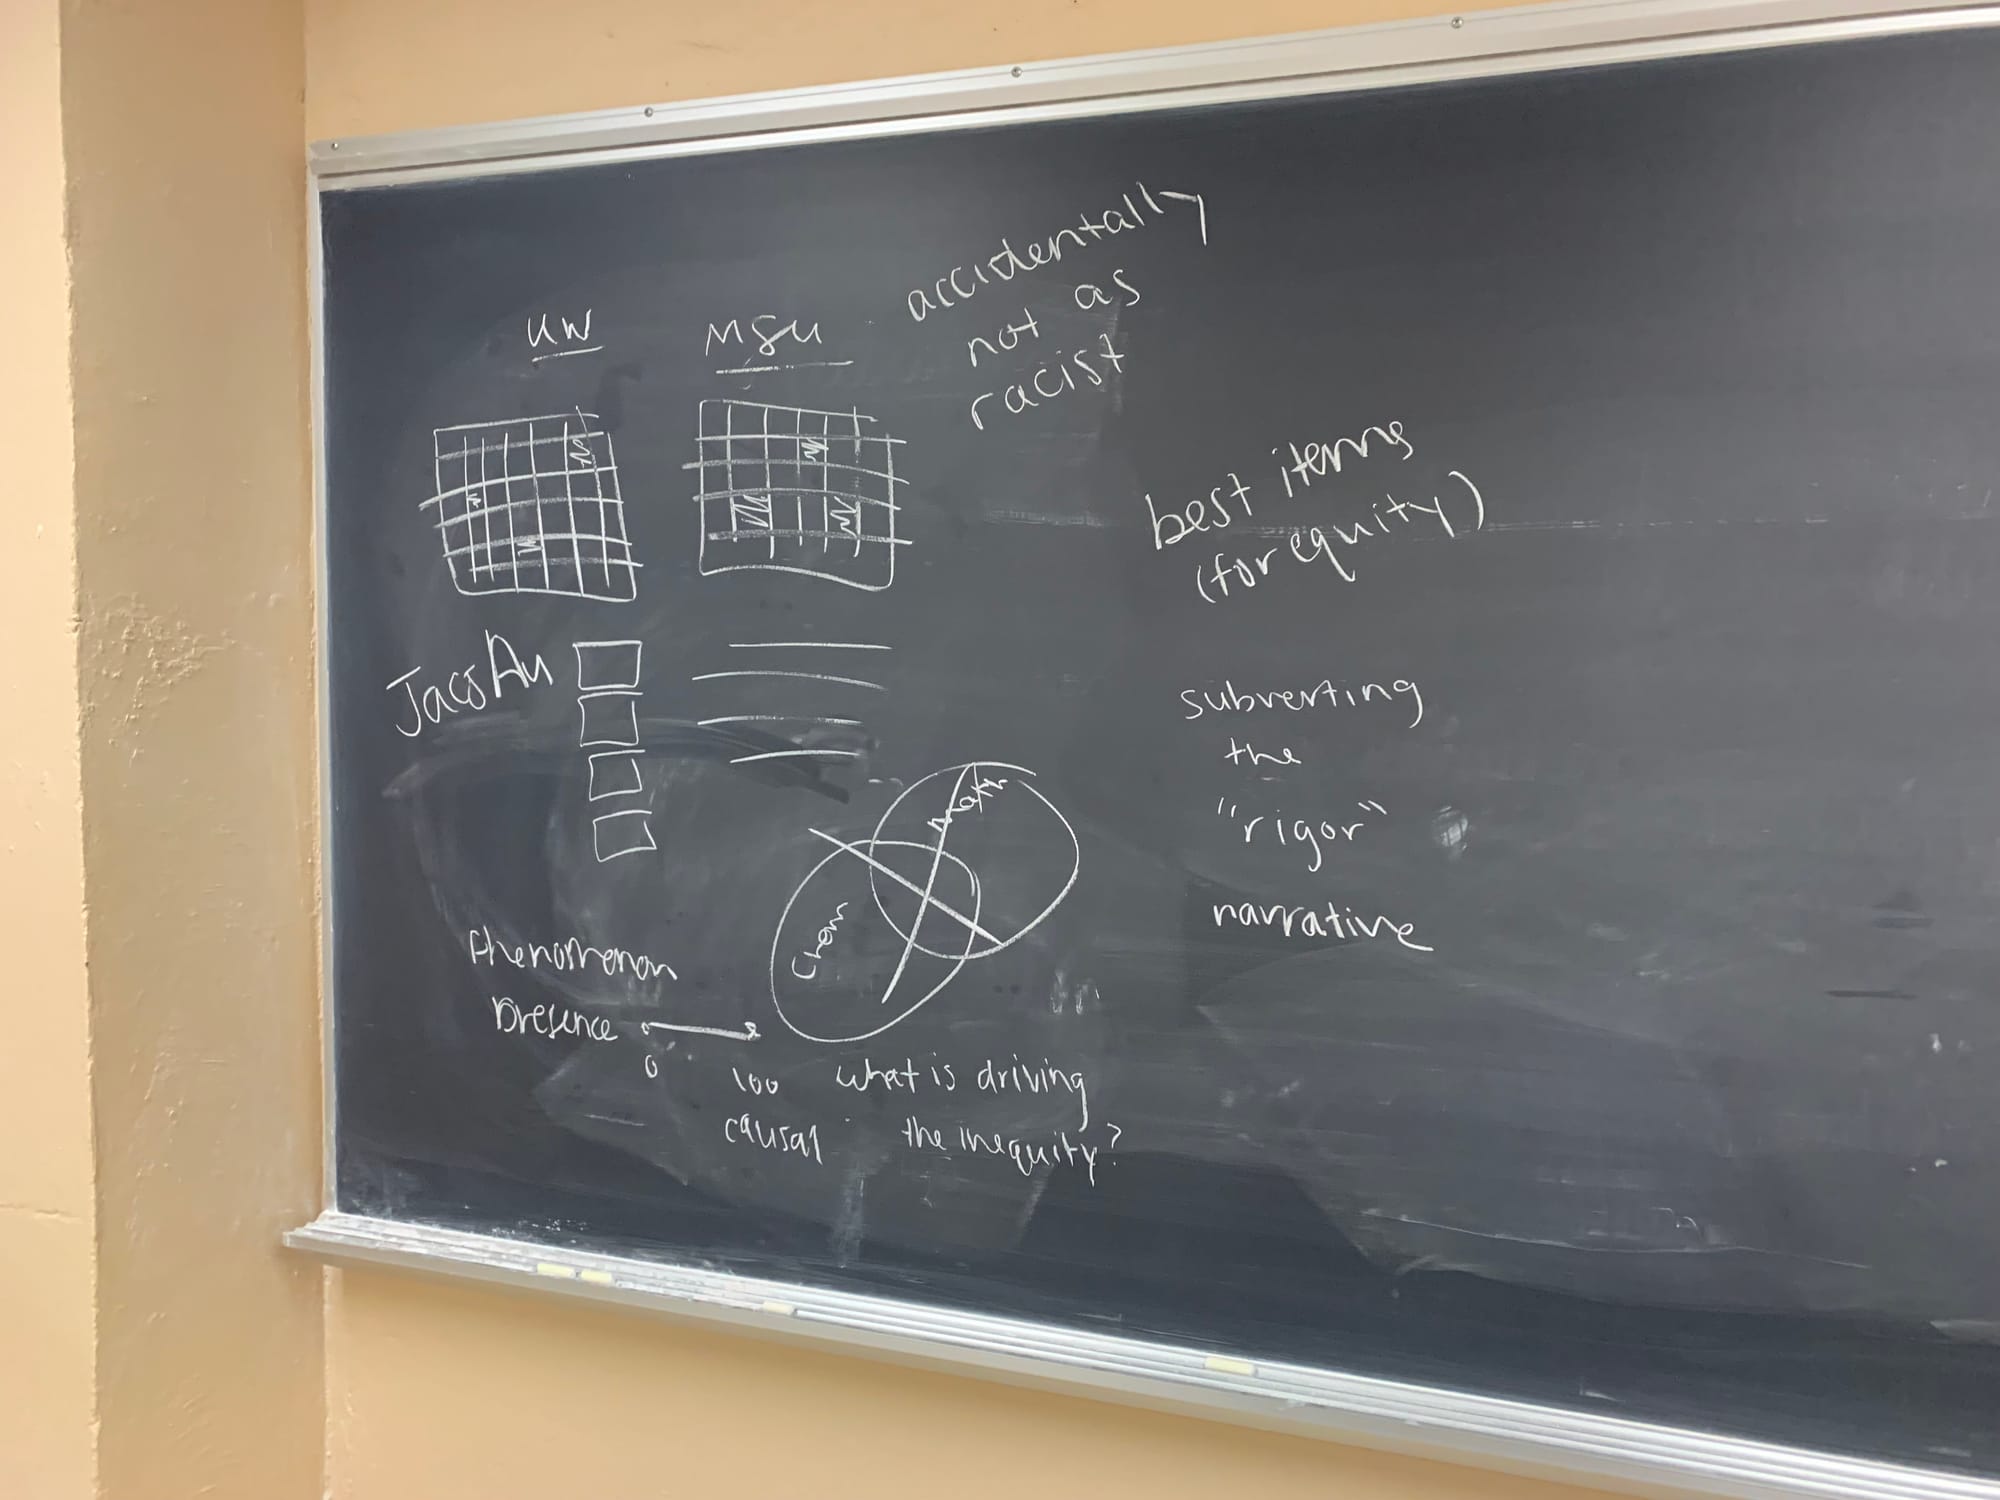 UW
MSU
accidentally
not as
racist
best items
(for equity)
JacsAu
subverting
the
"rigor"
narrative
Math
Chem
Phenomenon
presence
0
100
causal
what is driving
the inequity?